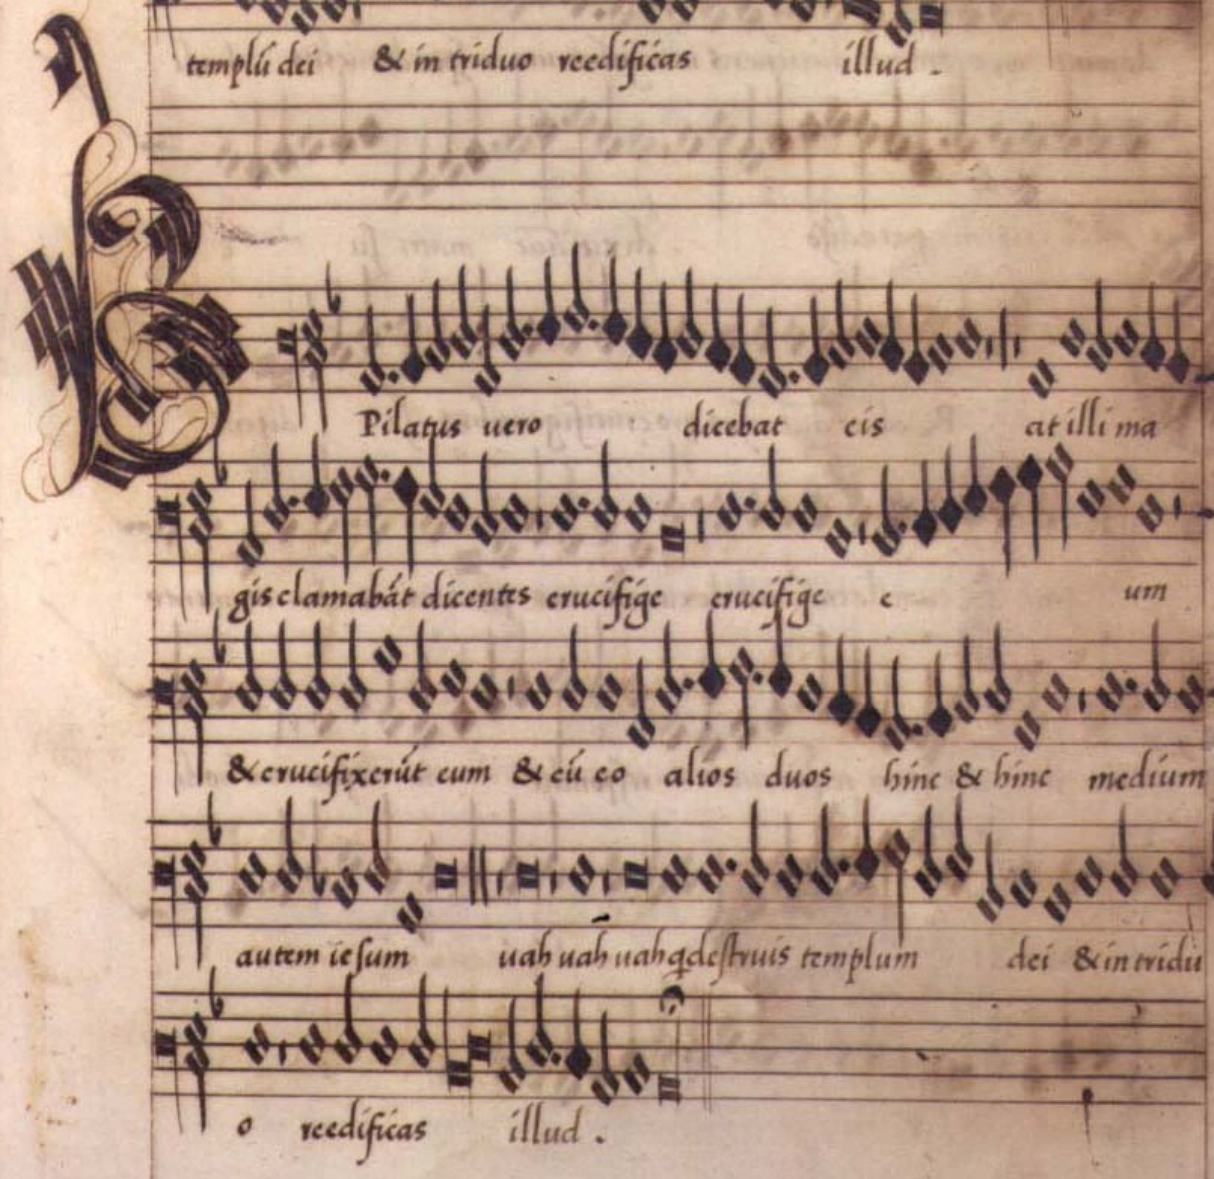 templū dei & in triduo reedificas illud .
B
Pilatus uero dicebat eis at illi ma
gis clamabāt dicentes crucifige crucifige e um
& crucifixerūt eum & cū eo alios duos hinc & hinc medium
autem iesum uah uah uah q destruis templum dei & in tridu
o reedificas illud .